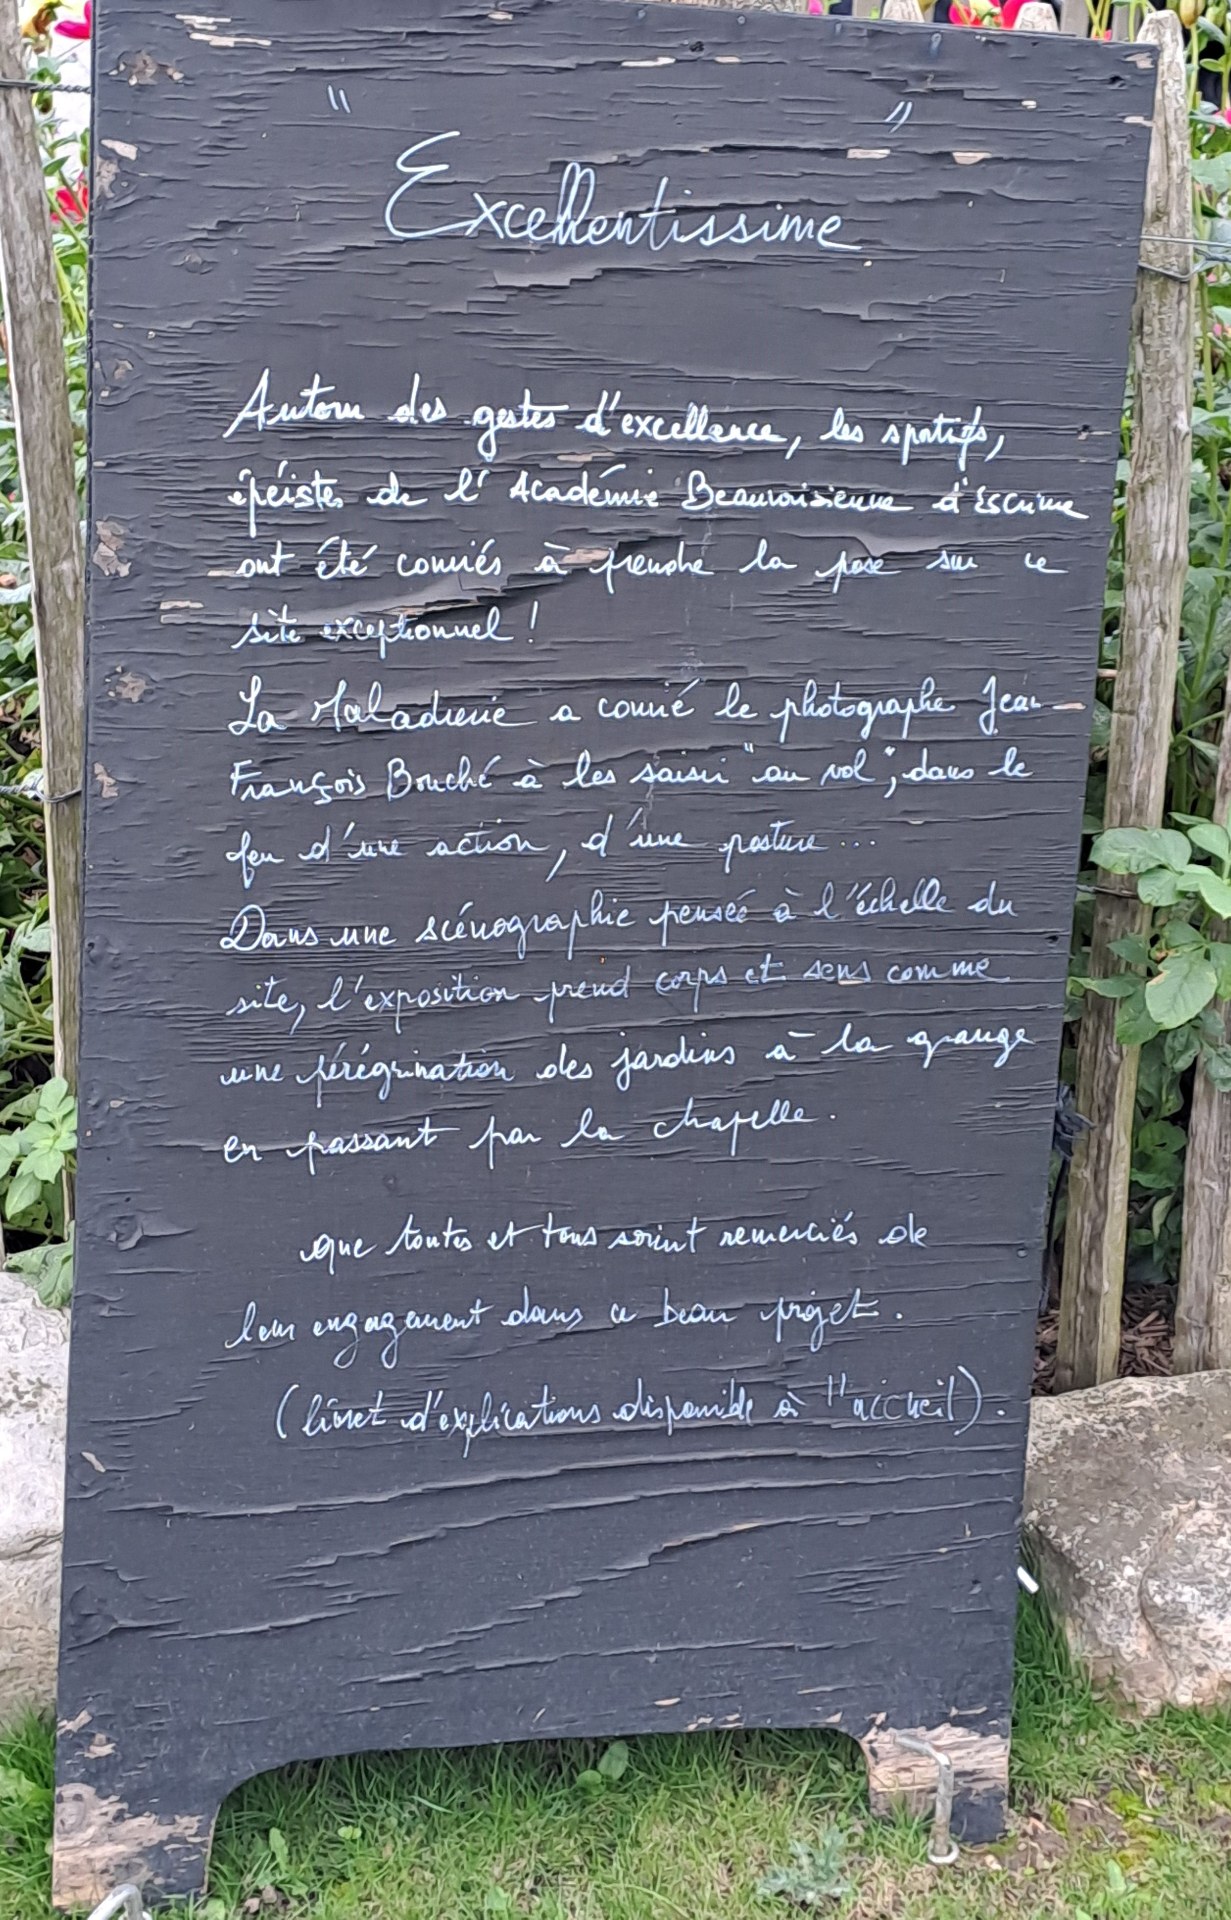 " Excellentissime "
Autour des gestes d'excellance, les sportifs,
épéistes de l'Académie Beauvaisienne d'Escrime
ont été conviés à prendre la pose sur ce
site exceptionnel !
La Maladrerie a convié le photographe Jean-
François Bouché à les saisir "au vol", dans le
feu d'une action, d'une posture ...
Dans une scénographie pensée à l'échelle du
site, l'exposition prend corps et sens comme
une pérégrination des jardins à la grange
en passant par la chapelle.
que toutes et tous soient remerciés de
leur engagement dans ce beau projet.
(livret d'explications disponible à l'accueil).